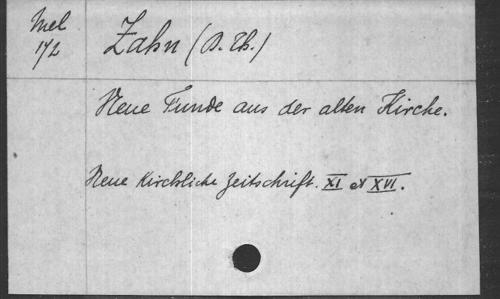 Mel
172
Zahn (D. Th.)
Neue Funde aus der alten Kirche.
Neue Kirchliche Zeitschrift. XI et XVI.